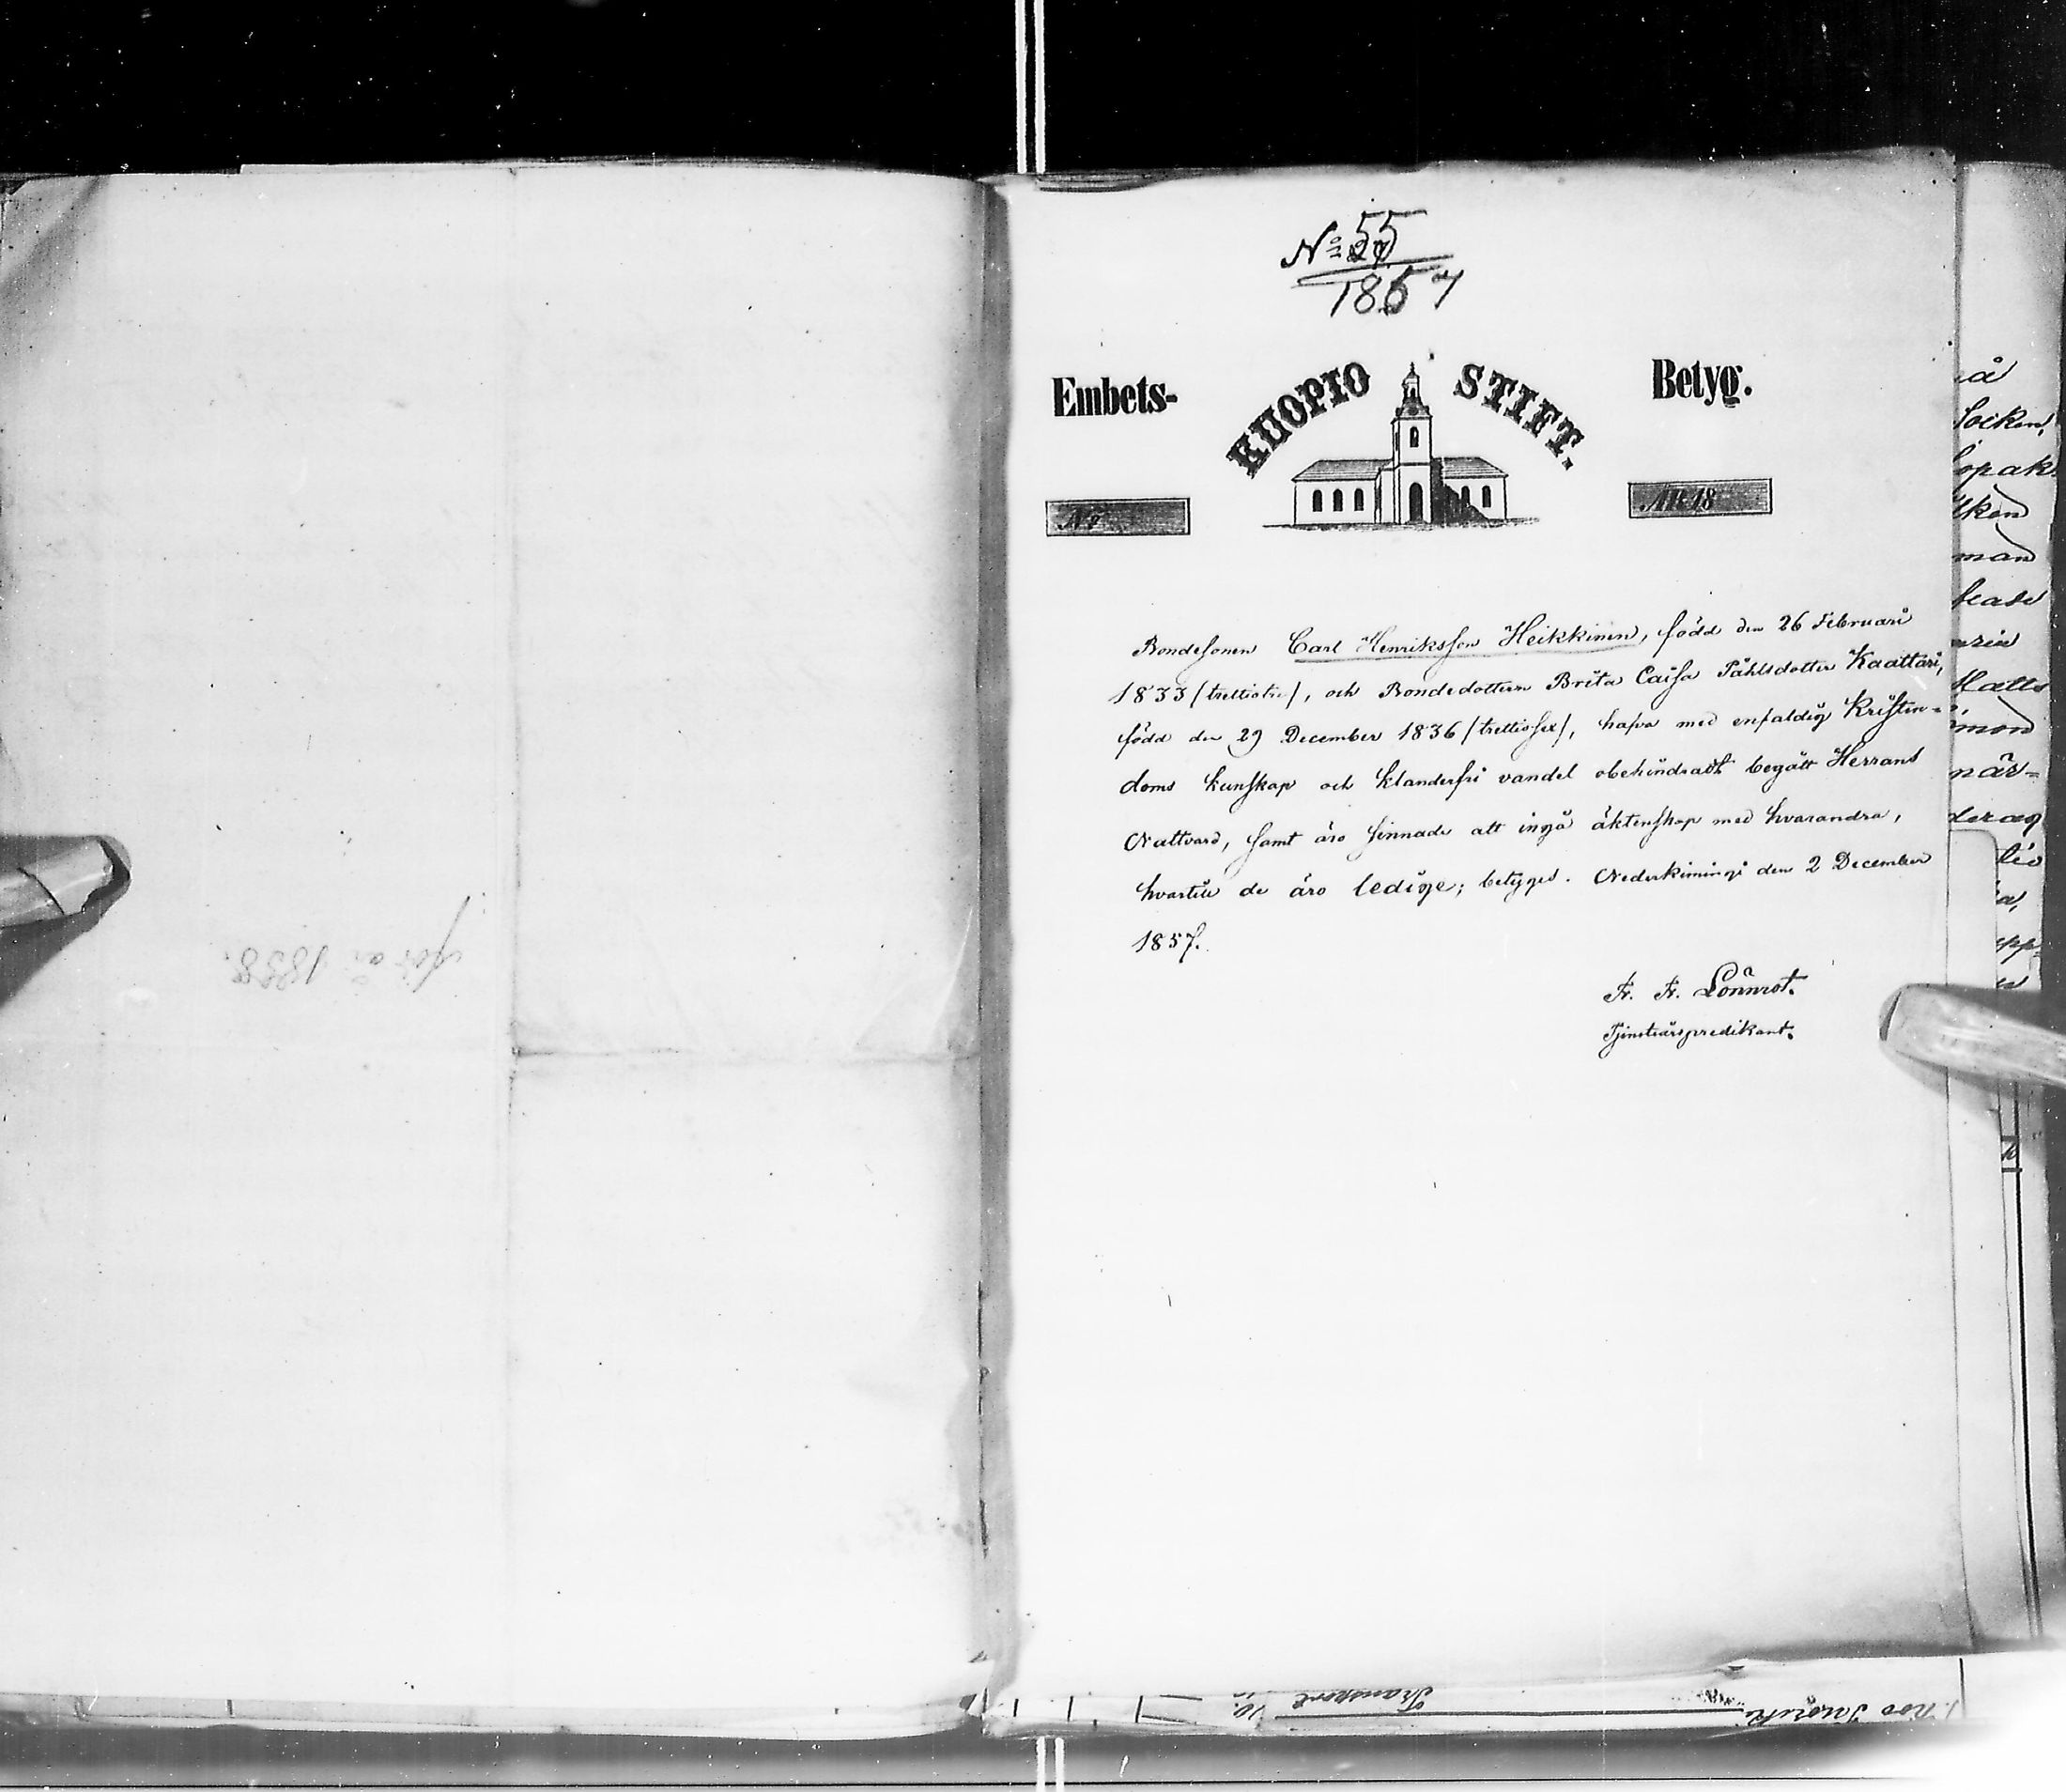 för år 1858.
Nº 55
1857
Embets-
KUOPIO STIFT.
Betyg.
Nº
ÅR 18
Bondesonen Carl Henriksson Heikkinen, född den 26 Februari
1833 (trettiotre), och Bondedottern Brita Caisa Påhlsdotter Kaattari,
född den 29 December 1836 (trettiosex), hafva med enfaldig Kristen-
doms kunskap och klanderfri vandel obehindradt begått Herrans
Nattvard, samt äro sinnade att ingå äktenskap med hvarandra,
hvartill de äro ledige; betyges. Nederkimingi den 2 December
1857.
Fr. Fr. Lönnrot.
Tjensteårspredikant.
å
Socken,
man
Matts
när-
Transport